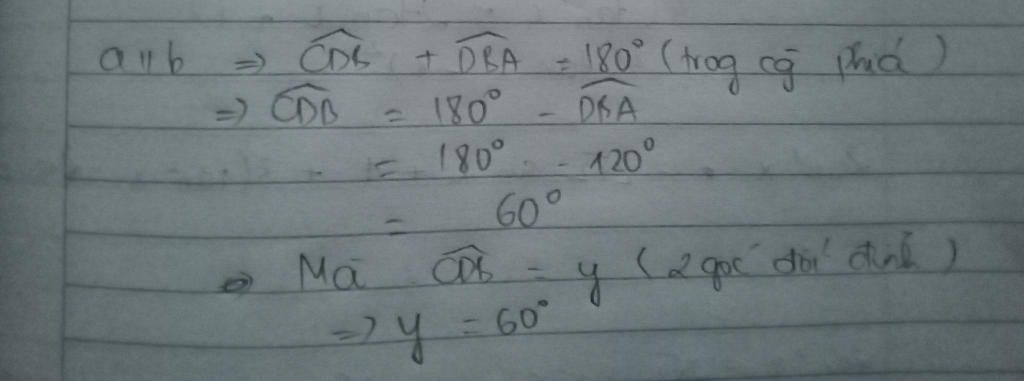 a // b ⇒ ∠CDB + ∠DBA = 180° (trog cg̃ phiá)
⇒ ∠CDB = 180° - ∠DBA
= 180° - 120°
= 60°
Mà ∠CDB = y (2 góc đối đỉnh)
⇒ y = 60°